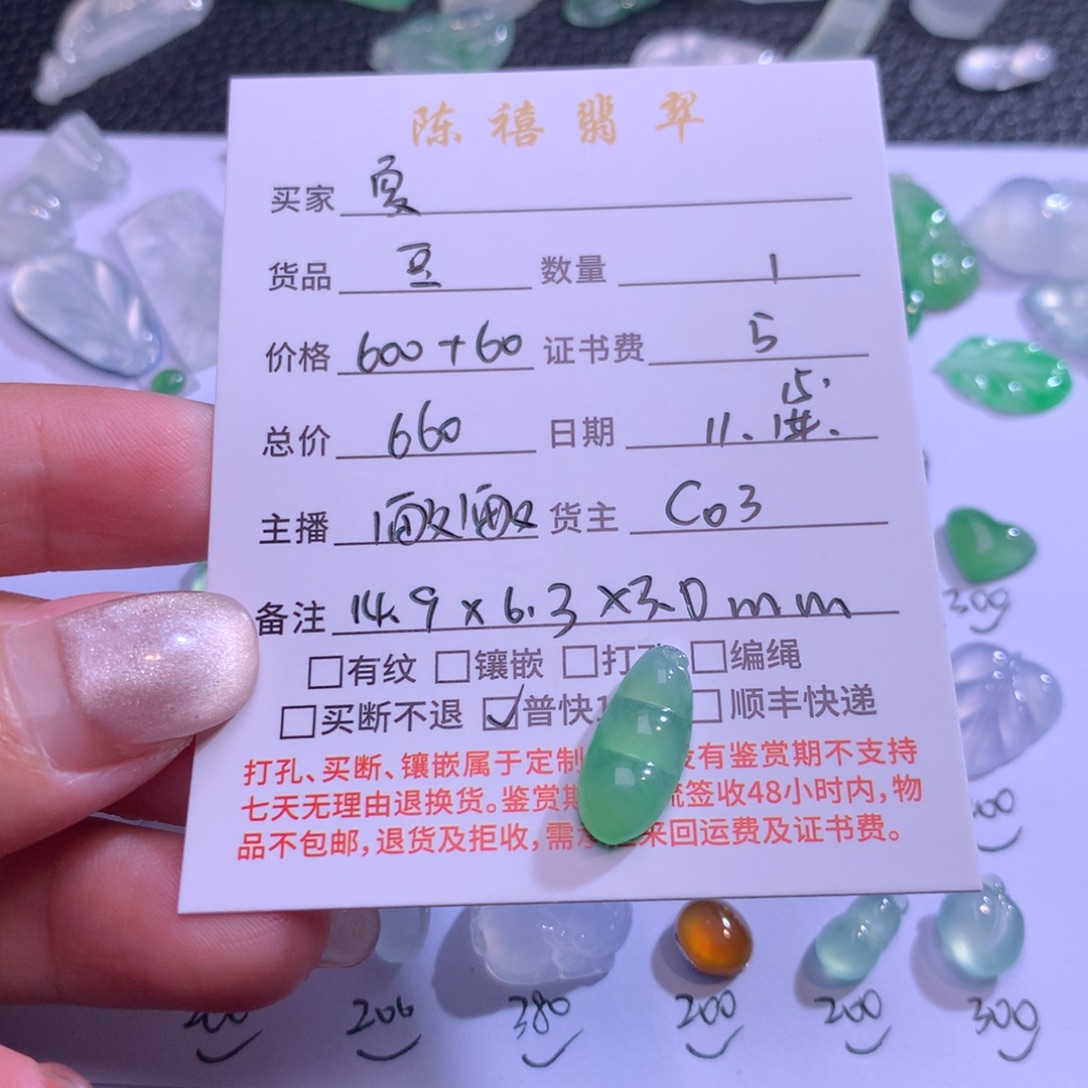 陈禧翡翠
买家 夏
货品 豆 数量 1
价格 600+60 证书费 5
15.
总价 660 日期 11.
主播 货主 C03
备注 14.9x6.3x3.0mm
□有纹 □镶嵌 □打 □编绳
□买断不退 ☑普快 □顺丰快递
打孔、买断、镶嵌属于定制 有鉴赏期不支持
七天无理由退换货。鉴赏 签收48小时内,物
品不包邮,退货及拒收,需 来回运费及证书费。
309
200 380 200 200 309